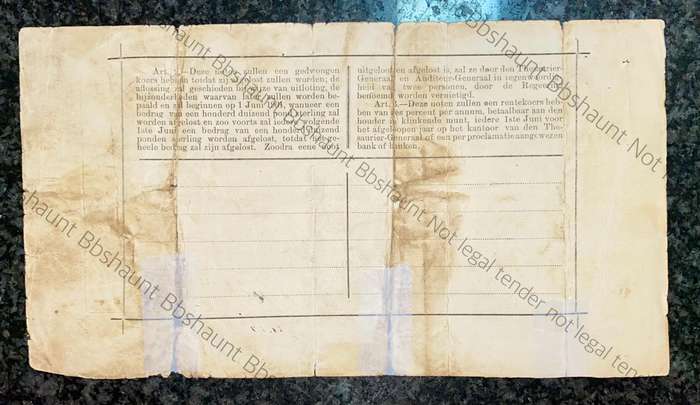 Art. —Deze noten zullen een gedwongen
koers hebben totdat zij afgelost zullen worden; de
aflossing zal geschieden bij wijze van uitloting, de
bijzonderheden waarvan later zullen worden be-
paald en zal beginnen op 1 Juni 1901, wanneer een
bedrag van een honderd duizend pond sterling zal
worden afgelost en zoo voorts zal iedere volgende
1ste Juni een bedrag van een honderd duizend
ponden sterling worden afgelost, totdat het ge-
heele bedrag zal zijn afgelost. Zoodra eene noot
uitgeloot en afgelost is, zal ze door den Thesaurier-
Generaal en Auditeur-Generaal in tegenwoordig-
heid van twee personen, door de Regeering
benoemd worden vernietigd.
Art. —Deze noten zullen een rentekoers heb-
ben van zes percent per annum, betaalbaar aan den
houder in klinkende munt, iedere 1ste Juni voor
het afgeloopen jaar op het kantoor van den The-
saurier-Generaal of een per proclamatie aangewezen
bank of banken.
Bbshaunt Bbshaunt Bbshaunt Not legal tender
Bbshaunt Bbshaunt Bbshaunt Not legal tender not legal tender